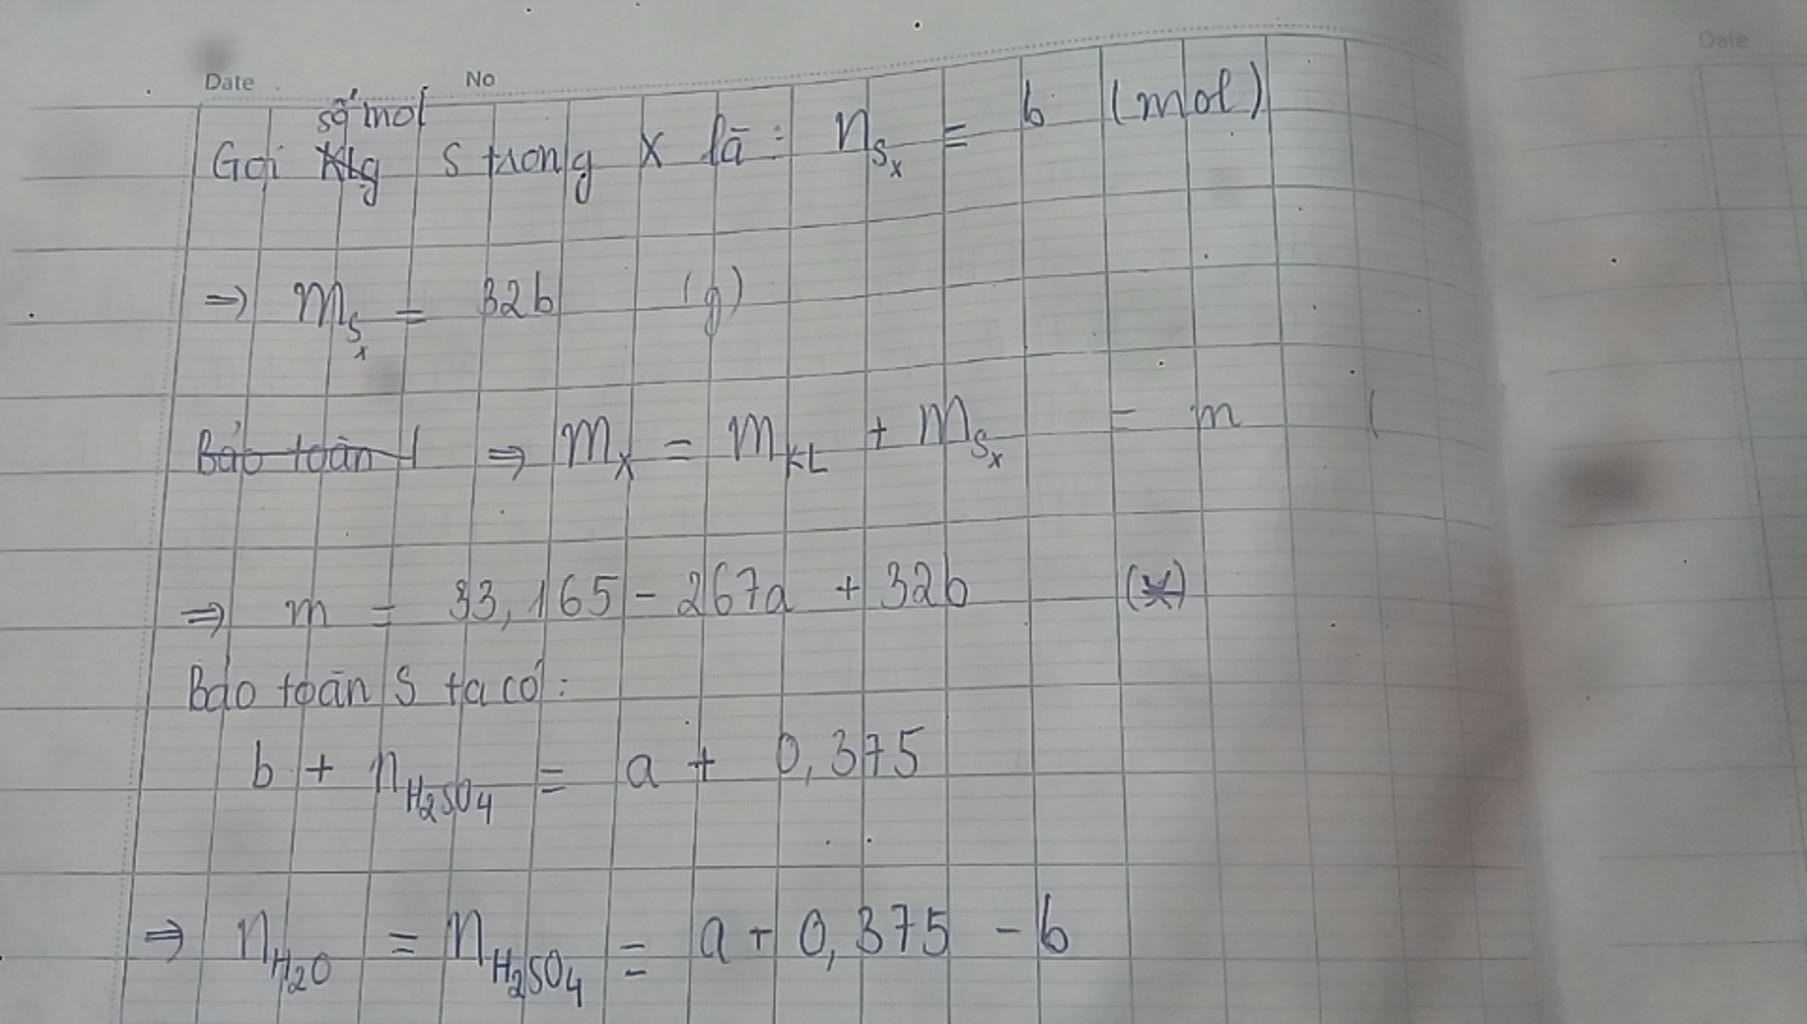 Date No
số mol
Gọi S trong X là: n_{S_X} = b (mol)
=> m_{S_X} = 32b (g)
Bảo toàn => m_X = m_{KL} + m_{S_X} = m (
=> m = 33,165 - 267a + 32b (*)
Bảo toàn S ta có:
b + n_{H_2SO_4} = a + 0,375
=> n_{H_2O} = n_{H_2SO_4} = a + 0,375 - b
Date